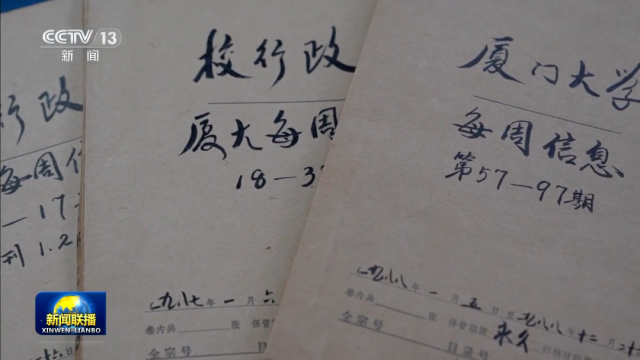 CCTV 13
新闻
行政
每周信
17
刊1.2
校行政
厦大每周
18-3
一九八七年一月六
卷内共 张 保管
全宗号
厦门大学
每周信息
第57-97期
一九八八年一月五日至一九八八年十二月二十
卷内共 张 保管期限 永久
全宗号 目录
新闻联播
XINWEN LIANBO